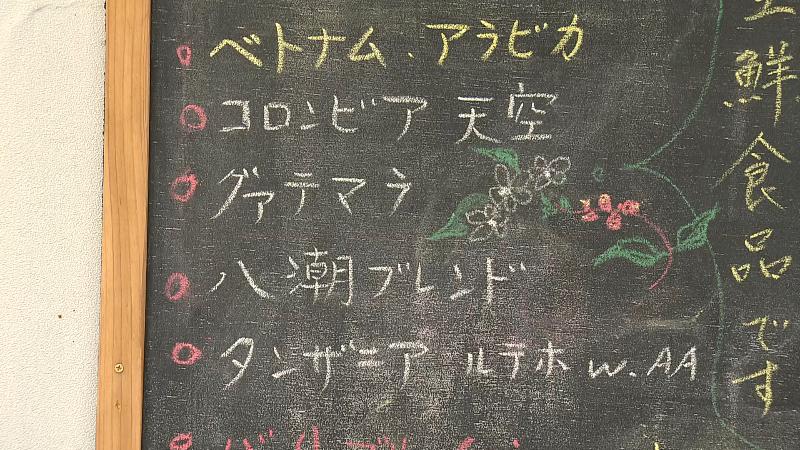 ベトナム、アラビカ
コロンビア 天空
グァテマラ
八潮ブレンド
タンザニア ルテホ W.AA
鮮食品です